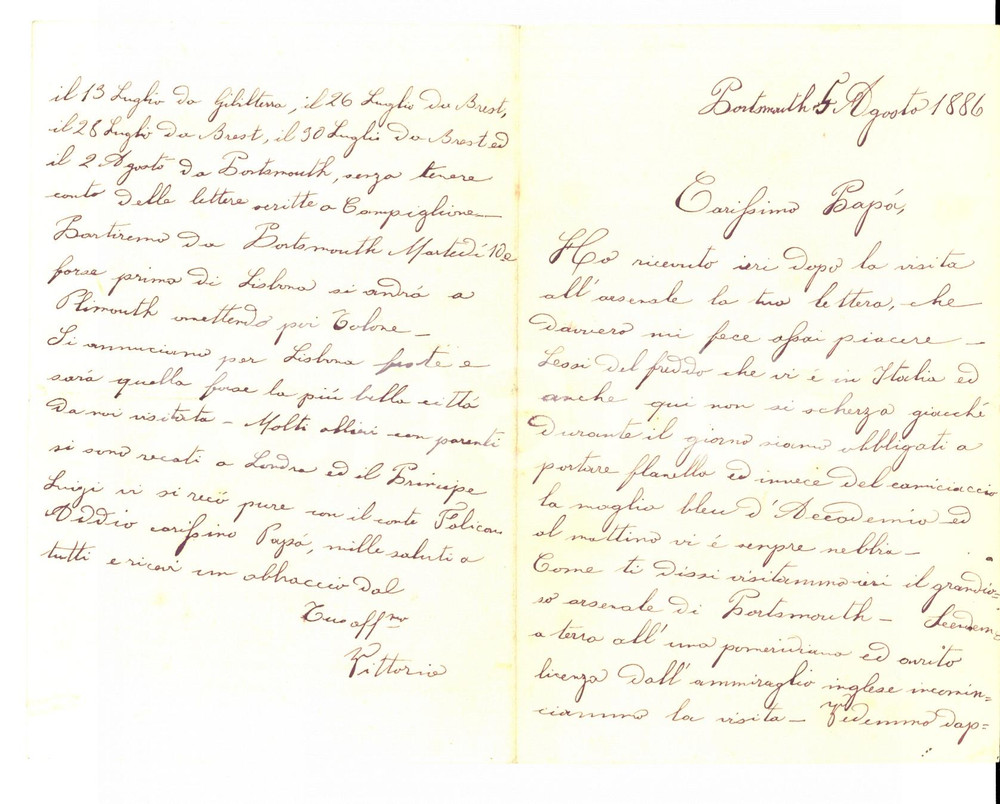 Portsmouth 5 Agosto 1886
Carissimo Papá,
Ho ricevuto ieri dopo la visita
all'arsenale la tua lettera, che
davvero mi fece assai piacere —
Lessi del freddo che vi é in Italia ed
anche qui non si scherza giacché
durante il giorno siamo obbligati a
portare flanella ed invece del camiciaccio
la maglia bleu d'Accademia ed
al mattino vi é senpre nebbia —
Come ti dissi visitammo ieri il grandio=
so arsenale di Portsmouth — Scendem.
a terra all'una pomeridiana ed avuto
licenza dall'ammiraglio inglese incomin=
ciammo la visita — Vedemmo dap=
il 13 Luglio da Gibilterra, il 26 Luglio da Brest,
il 28 Luglio da Brest, il 30 Luglio da Brest ed
il 2 Agosto da Portsmouth, senza tenere
conto delle lettere scritte a Campiglione —
Partiremo da Portsmouth Martedí 10 e
forse prima di Lisbona si andrá a
Plimouth omettendo poi Tolone —
Si annuciano per Lisbona feste e
sará quella forse la piú bella cittá
da noi visitata — Molti allievi con parenti
si sono recati a Londra ed il Principe
Luigi vi si recó pure con il conte
Addio carissimo Papá, mille saluti a
tutti e ricevi un abbraccio dal
Tuo aff.mo
Vittorio